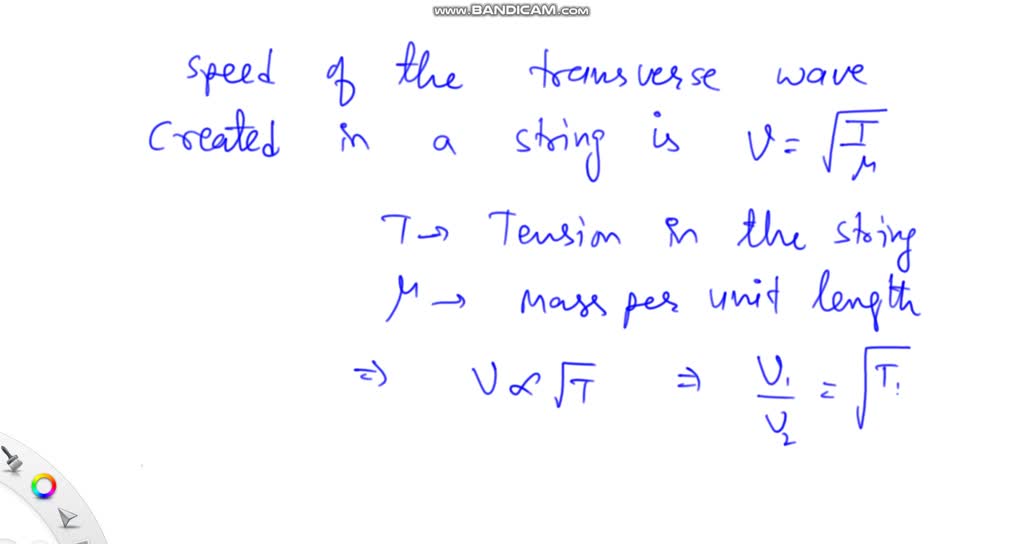 www.BANDICAM.com
speed of the transverse wave
Created in a string is v = √(T/μ)
T → Tension in the string
μ → Mass per unit length
⇒ V ∝ √T ⇒ V₁/V₂ = √T₁